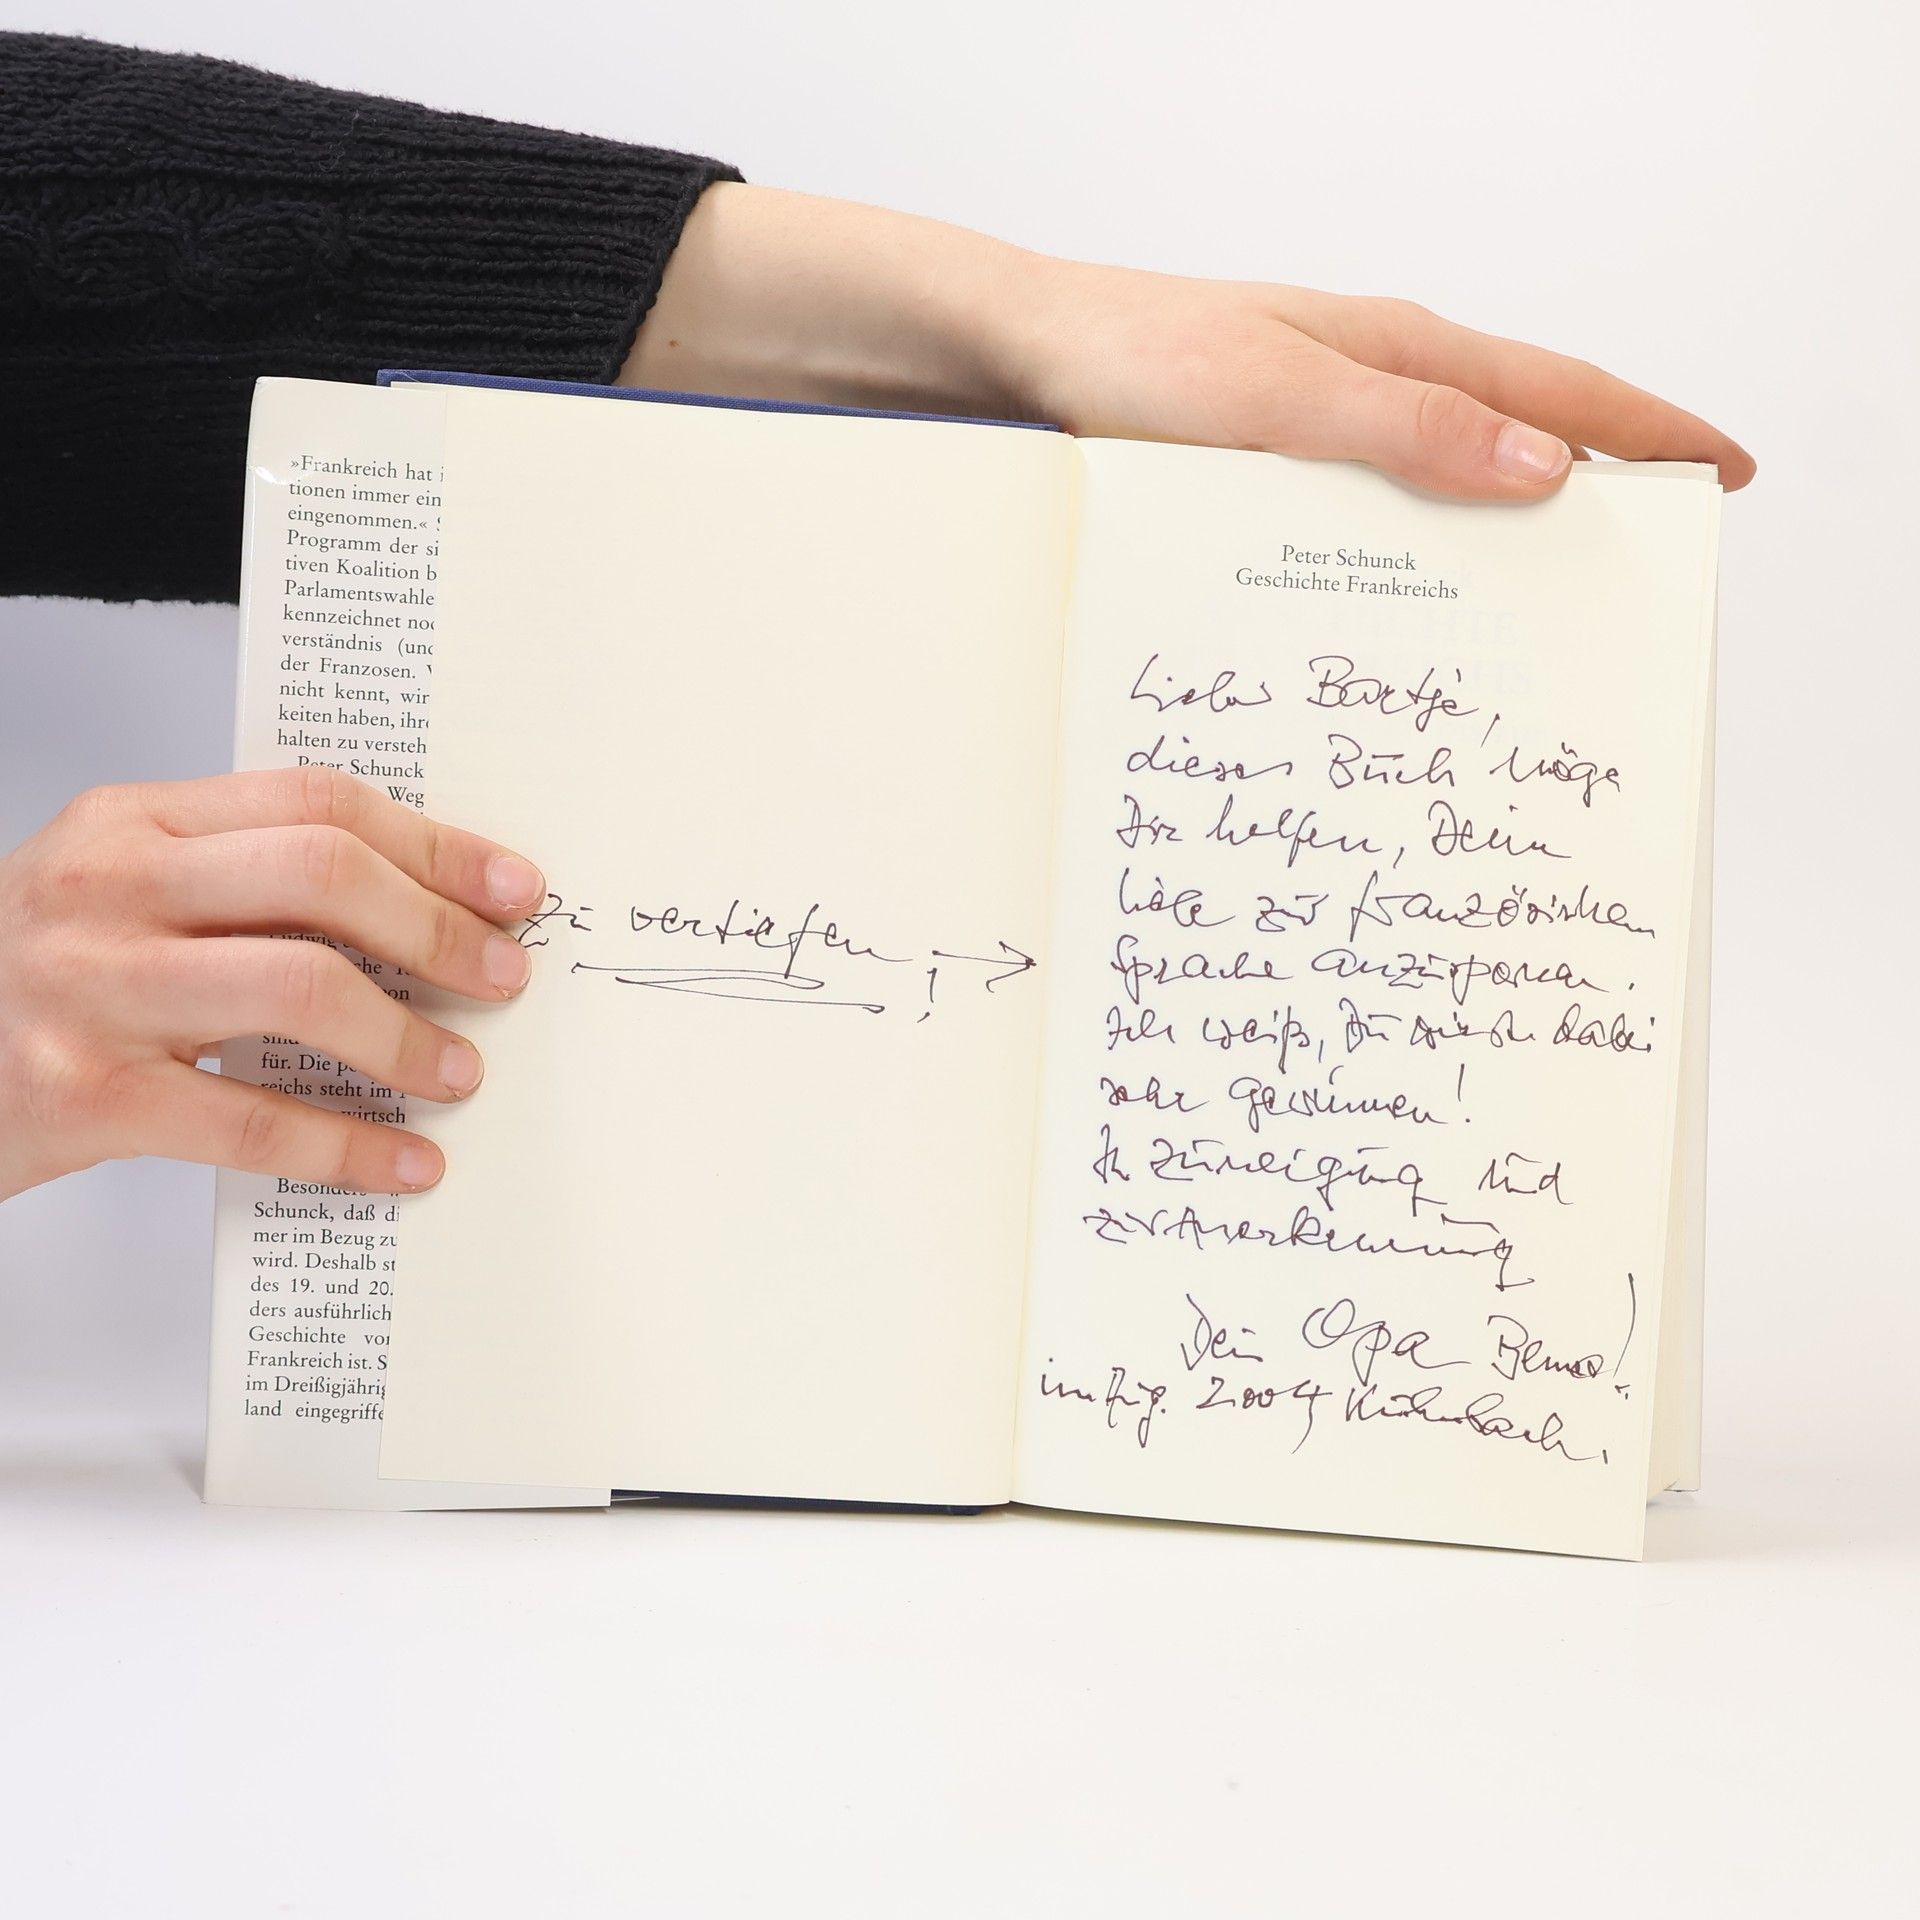 »Frankreich hat
tionen immer ein
eingenommen.«
Programm der si
tiven Koalition b
Parlamentswahle
kennzeichnet noc
verständnis (und
der Franzosen.
nicht kennt, wir
keiten haben, ihre
halten zu versteh
Peter Schunck
Weg
Ludwig
che
on
sind
für. Die pe
reichs steht im
wirtsch
Besonders
Schunck, daß di
mer im Bezug zu
wird. Deshalb st
des 19. und 20.
ders ausführlich
Geschichte vor
Frankreich ist. S
im Dreißigjährig
land eingegriffe
zu vertiefen! →
Peter Schunck
Geschichte Frankreichs
dieses Buch möge
Dir helfen, Dein
zur französischen
Sprache anzuspornen.
Ich weiß, Du wirst dabei
sehr gewinnen!
In Zuneigung und
zur Anerkennung
Dein Opa
im Aug. 2004 Kühnbach.